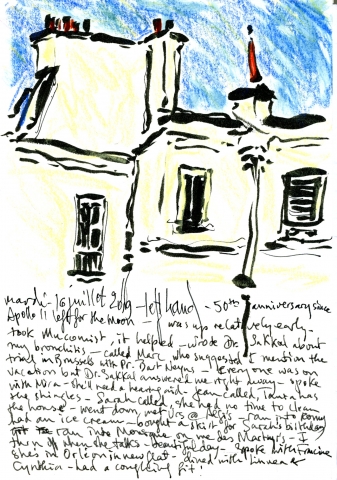 mardi - 16 juillet 2019 - left hand - 50th anniversary since
Apollo 11 left for the Moon - I was up relatively early -
took Mucomist, it helped - wrote Dr Sakkal about
my bronchitis - called Marc who suggested I mention the
trial in Brussels with Pr. Bart Neyns - Everyone was on
vacation but Dr Sakkal answered me right away - spoke
with Mira - she'll need a hearing aid - Jean called, Tanta has
shingles - Sarah called, she had no time to clean
the house - went down, met Urs @ - ran into Romy
had an ice cream - bought a skirt for Sarah's birthday
ran into Monique on rue des Martyrs - I
when she talks - beautiful day - spoke with
she's in Orleans in new flat - dined with &
Cynthia - had a coughing fit!